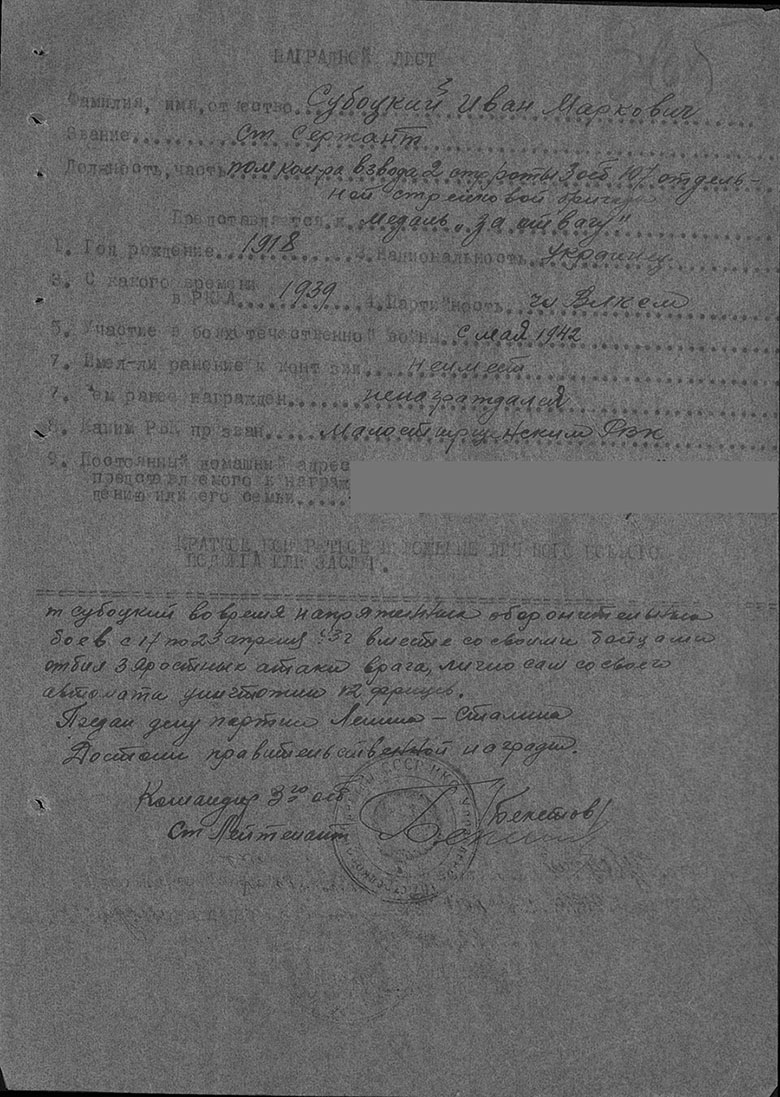 НАГРАДНОЙ ЛИСТ
Фамилия, имя, отчество Субоцкий Иван Маркович
Звание Ст Сержант
Должность, часть помком-ра взвода 2 стр роты 3 осб 107 отдель-
ной стрелковой бригады
Представляется к Медаль "за отвагу"
1. Год рождение 1918 Национальность украинец
3. С какого времени
в РККА 1939 4. Партийность чл Влксм
5. Участие в боях отечественной войны с мая 1942
7. Имел-ли ранение и контузии неимеет
7. Чем ранее награжден ненаграждался
8. Каким РВК призван РВК
9. Постоянный домашний адрес
представляемого к награж
дению или его семьи
КРАТКОЕ КОНКРЕТНОЕ ИЗЛОЖЕНИЕ ЛИЧНОГО БОЕВОГО
ПОДВИГА ИЛИ ЗАСЛУГ.
т субоцкий во время напряженных оборонительных
боев с 17 по 23 апреля 43г вместе со своими байцами
отбил 3 яростных атаки врага, лично сам со своего
автомата уничтожил 12 фрицев.
Предан делу партии Ленина - Сталина
Достоин правительственной награды.
Командир 3го осб
Ст Лейтенант /Бекетов/